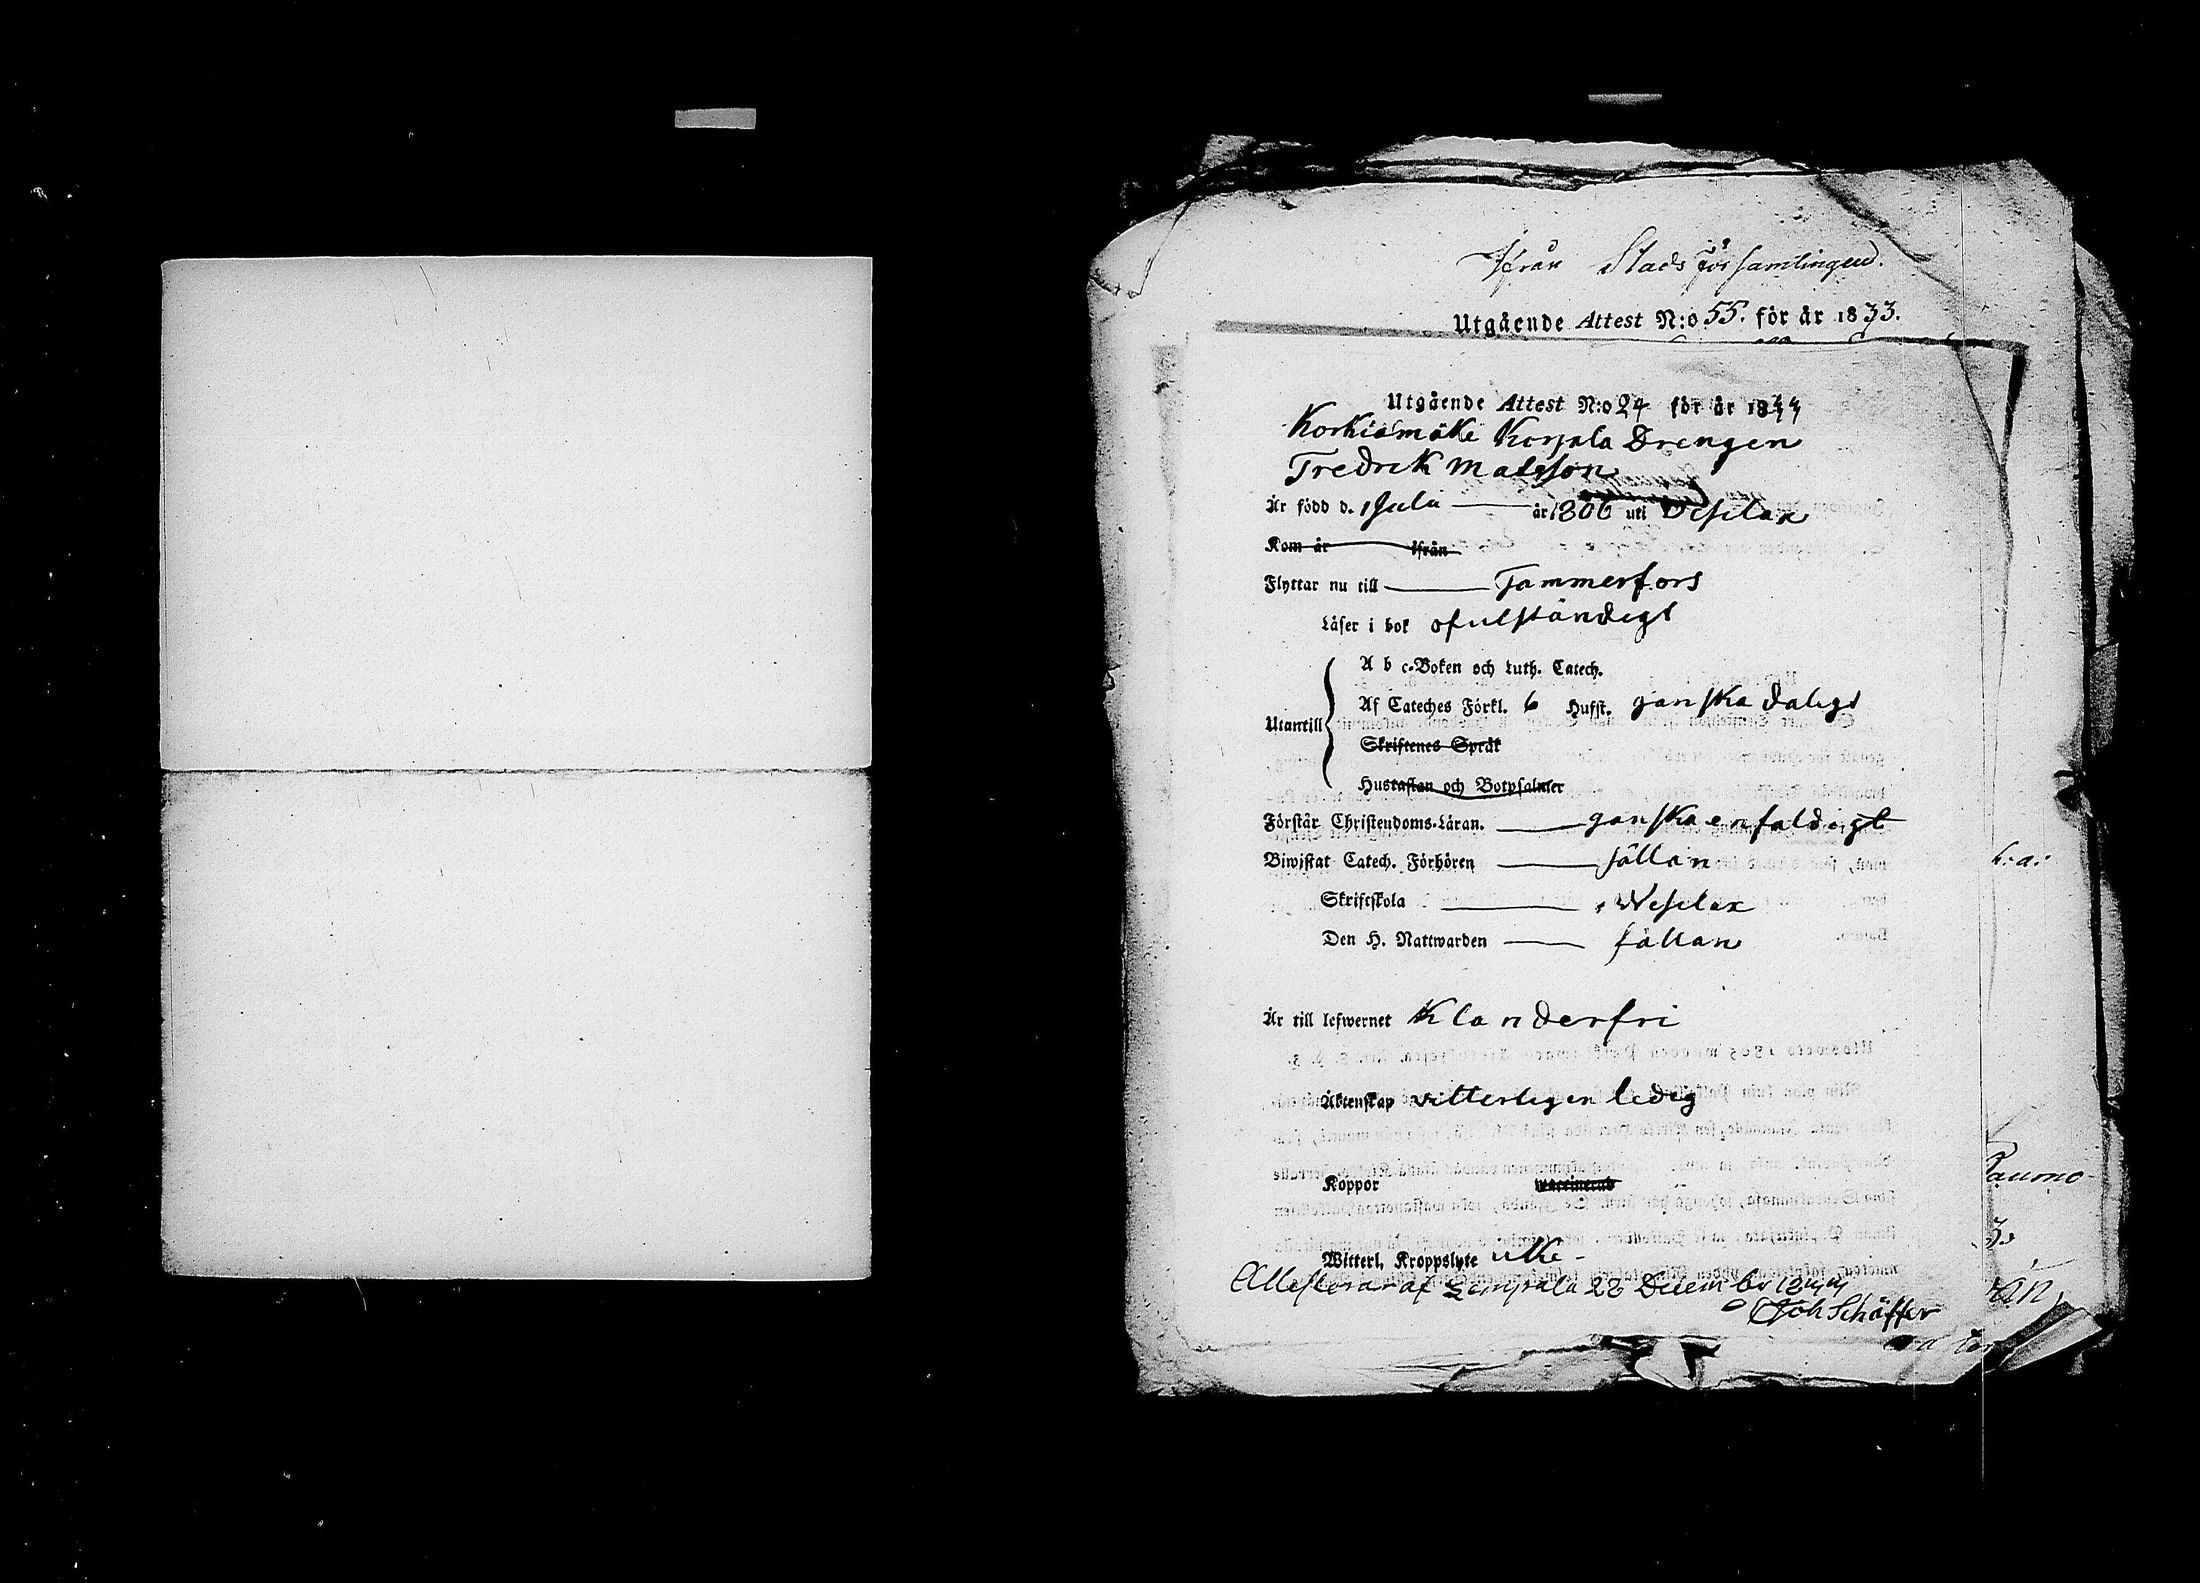 Ifrån Stads församlingen.
Utgående Attest N:o 55. för år 1833.
Utgående Attest N:o 24 för år 1844
Korkiamäki Korpela Drengen
Fredrik Matsson
Är född d. 1 Julii år 1806 uti Vesilax
Kom år ifrån
Flyttar nu till Tammerfors
Läser i bok ofulständigt
A b c-Boken och Luth. Catech.
Af Cateches Förkl. 6 Hufst. ganska daligt
Utantill
Skriftenes Språk
Hustaflan och Botpsalmer
Förstår Christendoms-Läran. ganska enfaldigt
Biwistat Catech. Förhören sällan
Skriftskola i Wesilax
Den H. Nattwarden sällan
Är till lefwernet Klanderfri
Äktenskap vitterligen ledig
Koppor
Witterl. Kroppslyte icke
Attesterar af Lempäla 28 December 1844
Joh Schäffer